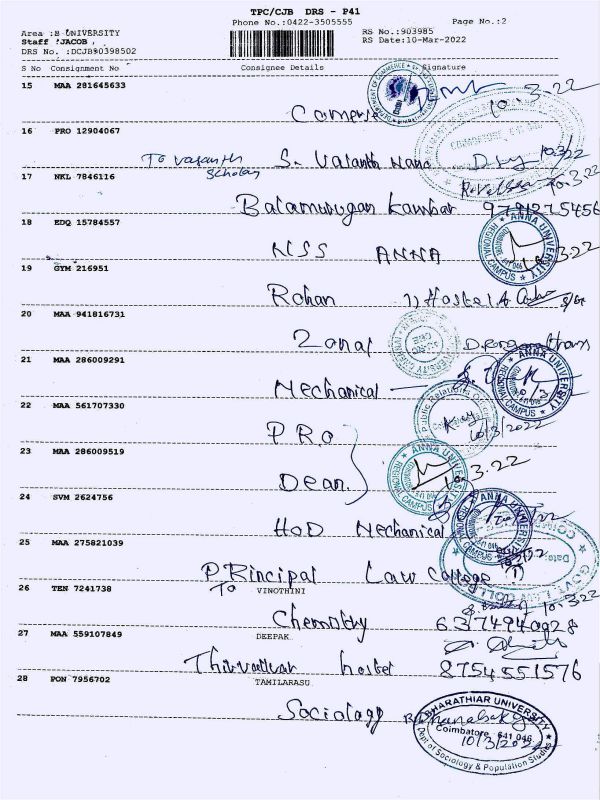 TPC/CJB DRS - P41
Phone No.:0422-3505555 Page No.:2
Area :B UNIVERSITY RS No.:903985
Staff :JACOB . RS Date:10-Mar-2022
DRS No. :DCJB90398502
S No Consignment No Consignee Details Signature
15 MAA 281645633
10.3.22
16 PRO 12904067
To Vasanth S. Vasanth 10.3/22
17 NKL 7846116
10.3.22
Balamurugan 9791275456
18 EDQ 15784557
NSS ANNA
ANNA UNIVERSITY REGIONAL CAMPUS
19 GYM 216951
Rohan Hostel
20 MAA 941816731
Zonal
21 MAA 286009291
Mechanical
ANNA UNIVERSITY REGIONAL CAMPUS
22 MAA 561707330
Public Relations
P R O 10/3/2022
23 MAA 286009519
Dean 3.22
ANNA UNIVERSITY REGIONAL CAMPUS
24 SVM 2624756
HOD Mechanical
ANNA UNIVERSITY REGIONAL CAMPUS
25 MAA 275821039
Principal Law College
26 TEN 7241738 To VINOTHINI
10.3.22
Chemistry
27 MAA 559107849 DEEPAK
hostel 8754551576
28 PON 7956702 TAMILARASU
Sociology
BHARATHIAR UNIVERSITY
Coimbatore 641 046
10/3/2022
Dept of Sociology & Population Studies